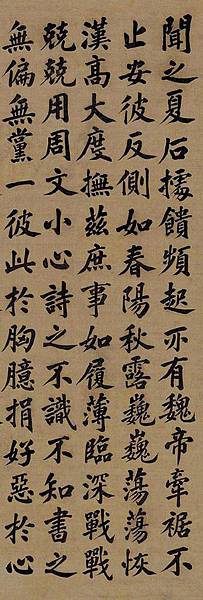 聞之夏后據饋頻起亦有魏帝牽裾不
止安彼反側如春陽秋露巍巍蕩蕩恢
漢高大度撫茲庶事如履薄臨深戰戰
兢兢用周文小心詩之不識不知書之
無偏無黨一彼此於胸臆捐好惡於心